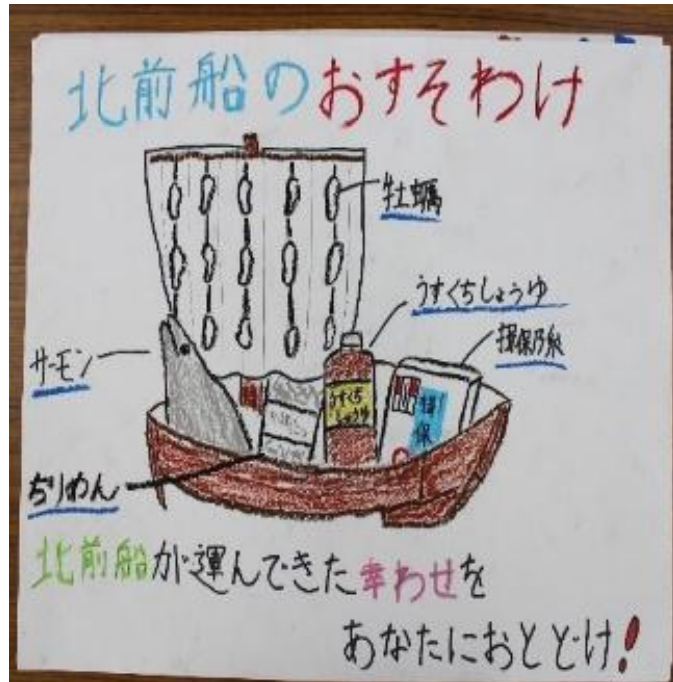 北前船のおすそわけ
牡蠣
うすくちしょうゆ
揖保乃糸
サーモン
うすくち
しょうゆ
揖
保
ちりめん
北前船が運んできた幸わせを
あなたにおとどけ!